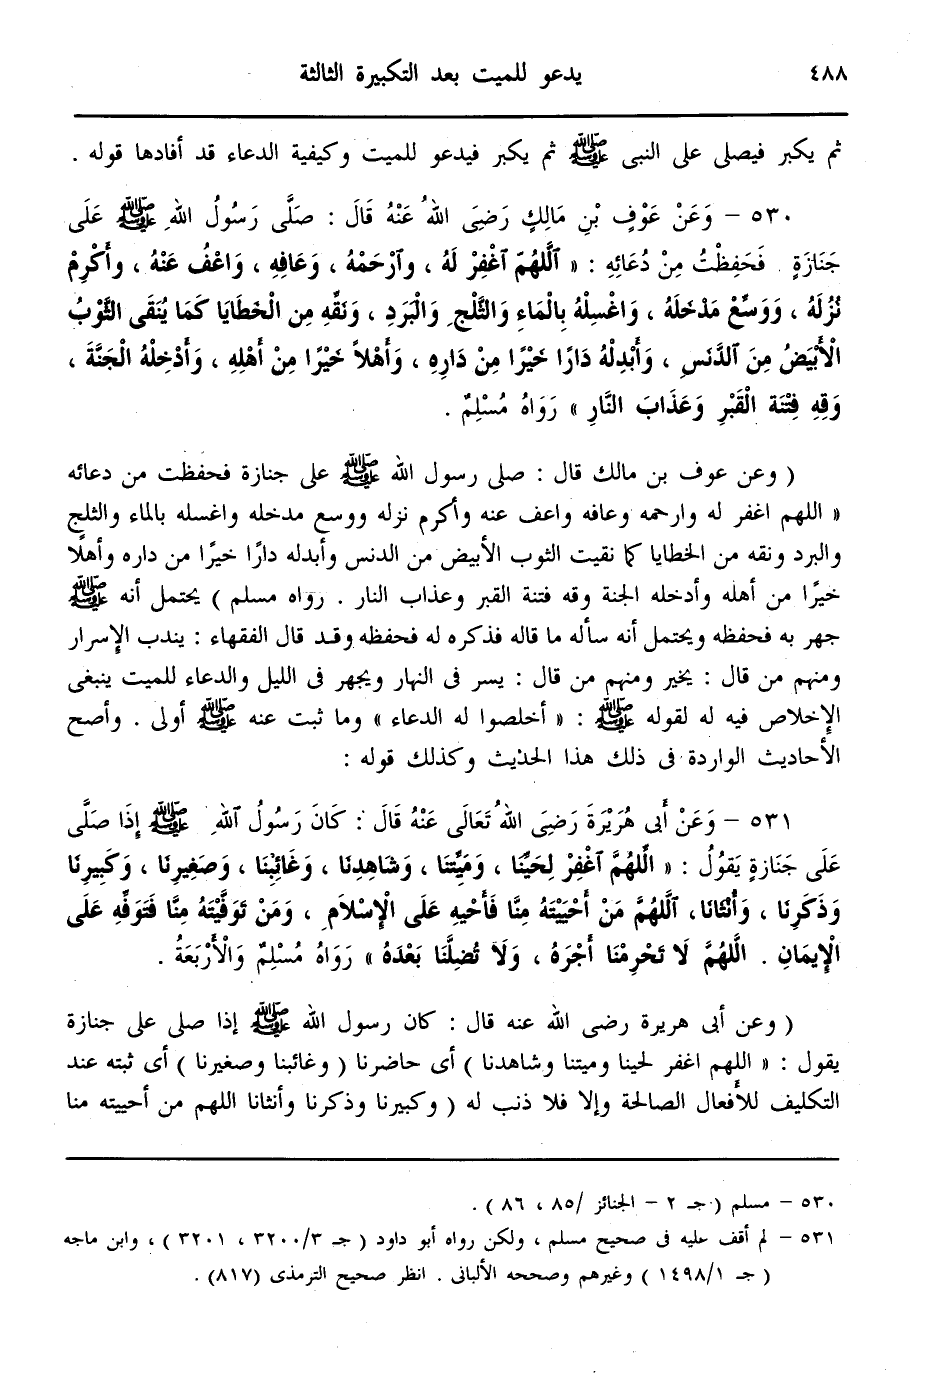 ٤٨٨ يدعو للميت بعد التكبيرة الثالثة
ثم يكبر فيصلى على النبى ﷺ ثم يكبر فيدعو للميت وكيفية الدعاء قد أفادها قوله .
٥٣٠ – وَعَنْ عَوْفِ بْنِ مَالِكٍ رَضِىَ اللهُ عَنْهُ قَالَ : صَلَّى رَسُولُ اللهِ ﷺ عَلَى
جَنَازَةٍ فَحَفِظْتُ مِنْ دُعَائِهِ : « ٱللَّهُمَّ ٱغْفِرْ لَهُ ، وٱرْحَمْهُ ، وَعَافِهِ ، وَاعْفُ عَنْهُ ، وأَكْرِمْ
نُزُلَهُ ، وَوَسِّعْ مَدْخَلَهُ ، وَاغْسِلْهُ بِالْمَاءِ وَالثَّلْجِ وَالْبَرَدِ ، وَنَقِّهِ مِن الْخَطَايَا كَمَا يُنَقَى الثَّوْبُ
الْأَبْيَضُ مِنَ ٱلدَّنَسِ ، وَأَبْدِلْهُ دَارًا خَيْرًا مِنْ دَارِهِ ، وَأَهْلاً خَيْرًا مِنْ أَهْلِهِ ، وَأَدْخِلْهُ الْجَنَّةَ ،
وَقِهِ فِتْنَة الْقَبْرِ وَعَذَابَ النَّارِ » رَوَاهُ مُسْلِمٌ .
( وعن عوف بن مالك قال : صلى رسول الله ﷺ على جنازة فحفظت من دعائه
« اللهم اغفر له وارحمه وعافه واعف عنه وأكرم نزله ووسع مدخله واغسله بالماء والثلج
والبرد ونقه من الخطايا كما نقيت الثوب الأبيض من الدنس وأبدله دارًا خيرًا من داره وأهلًا
خيرًا من أهله وأدخله الجنة وقه فتنة القبر وعذاب النار . رواه مسلم ) يحتمل أنه ﷺ
جهر به فحفظه ويحتمل أنه سأله ما قاله فذكره له فحفظه وقد قال الفقهاء : يندب الإسرار
ومنهم من قال : يخير ومنهم من قال : يسر فى النهار ويجهر فى الليل والدعاء للميت ينبغى
الإخلاص فيه له لقوله ﷺ : « أخلصوا له الدعاء » وما ثبت عنه ﷺ أولى . وأصح
الأحاديث الواردة فى ذلك هذا الحديث وكذلك قوله :
٥٣١ – وَعَنْ أَبى هُرَيْرَةَ رَضِىَ اللهُ تَعَالَى عَنْهُ قَالَ : كَانَ رَسُولُ ٱللهِ ﷺ إِذَا صَلَّى
عَلَى جَنَازَةٍ يَقُولُ : « اللَّهُمَّ ٱغْفِرْ لِحَيِّنَا ، وَمَيِّتنَا ، وَشَاهِدِنَا ، وَغَائِبِنَا ، وَصَغِيرِنَا ، وَكَبِيرِنَا
وَذَكَرِنَا ، وَأُنْثَانَا، ٱللَّهُمَّ مَنْ أَحْيَيْتَهُ مِنَّا فَأَحْيِهِ عَلَى الْإِسْلَامِ ، وَمَنْ تَوَفَّيْتَهُ مِنَّا فَتَوَفِّهِ عَلَى
الْإِيمَانِ . اللَّهُمَّ لَا تَحْرِمْنَا أَجْرَهُ ، وَلَا تُضِلَّنَا بَعْدَهُ » رَوَاهُ مُسْلِمٌ وَالْأَرْبَعَةُ .
( وعن أبى هريرة رضى الله عنه قال : كان رسول الله ﷺ إذا صلى على جنازة
يقول : « اللهم اغفر لحينا وميتنا وشاهدنا ) أى حاضرنا ( وغائبنا وصغيرنا ) أى ثبته عند
التكليف للأفعال الصالحة وإلا فلا ذنب له ( وكبيرنا وذكرنا وأنثانا اللهم من أحييته منا
٥٣٠ – مسلم ( جـ ٢ – الجنائز /٨٥ ، ٨٦ ) .
٥٣١ – لم أقف عليه فى صحيح مسلم ، ولكن رواه أبو داود ( جـ ٣/ ٣٢٠٠ ، ٣٢٠١ ) ، وابن ماجه
( جـ ١/ ١٤٩٨ ) وغيرهم وصححه الألبانى . انظر صحيح الترمذى (٨١٧) .